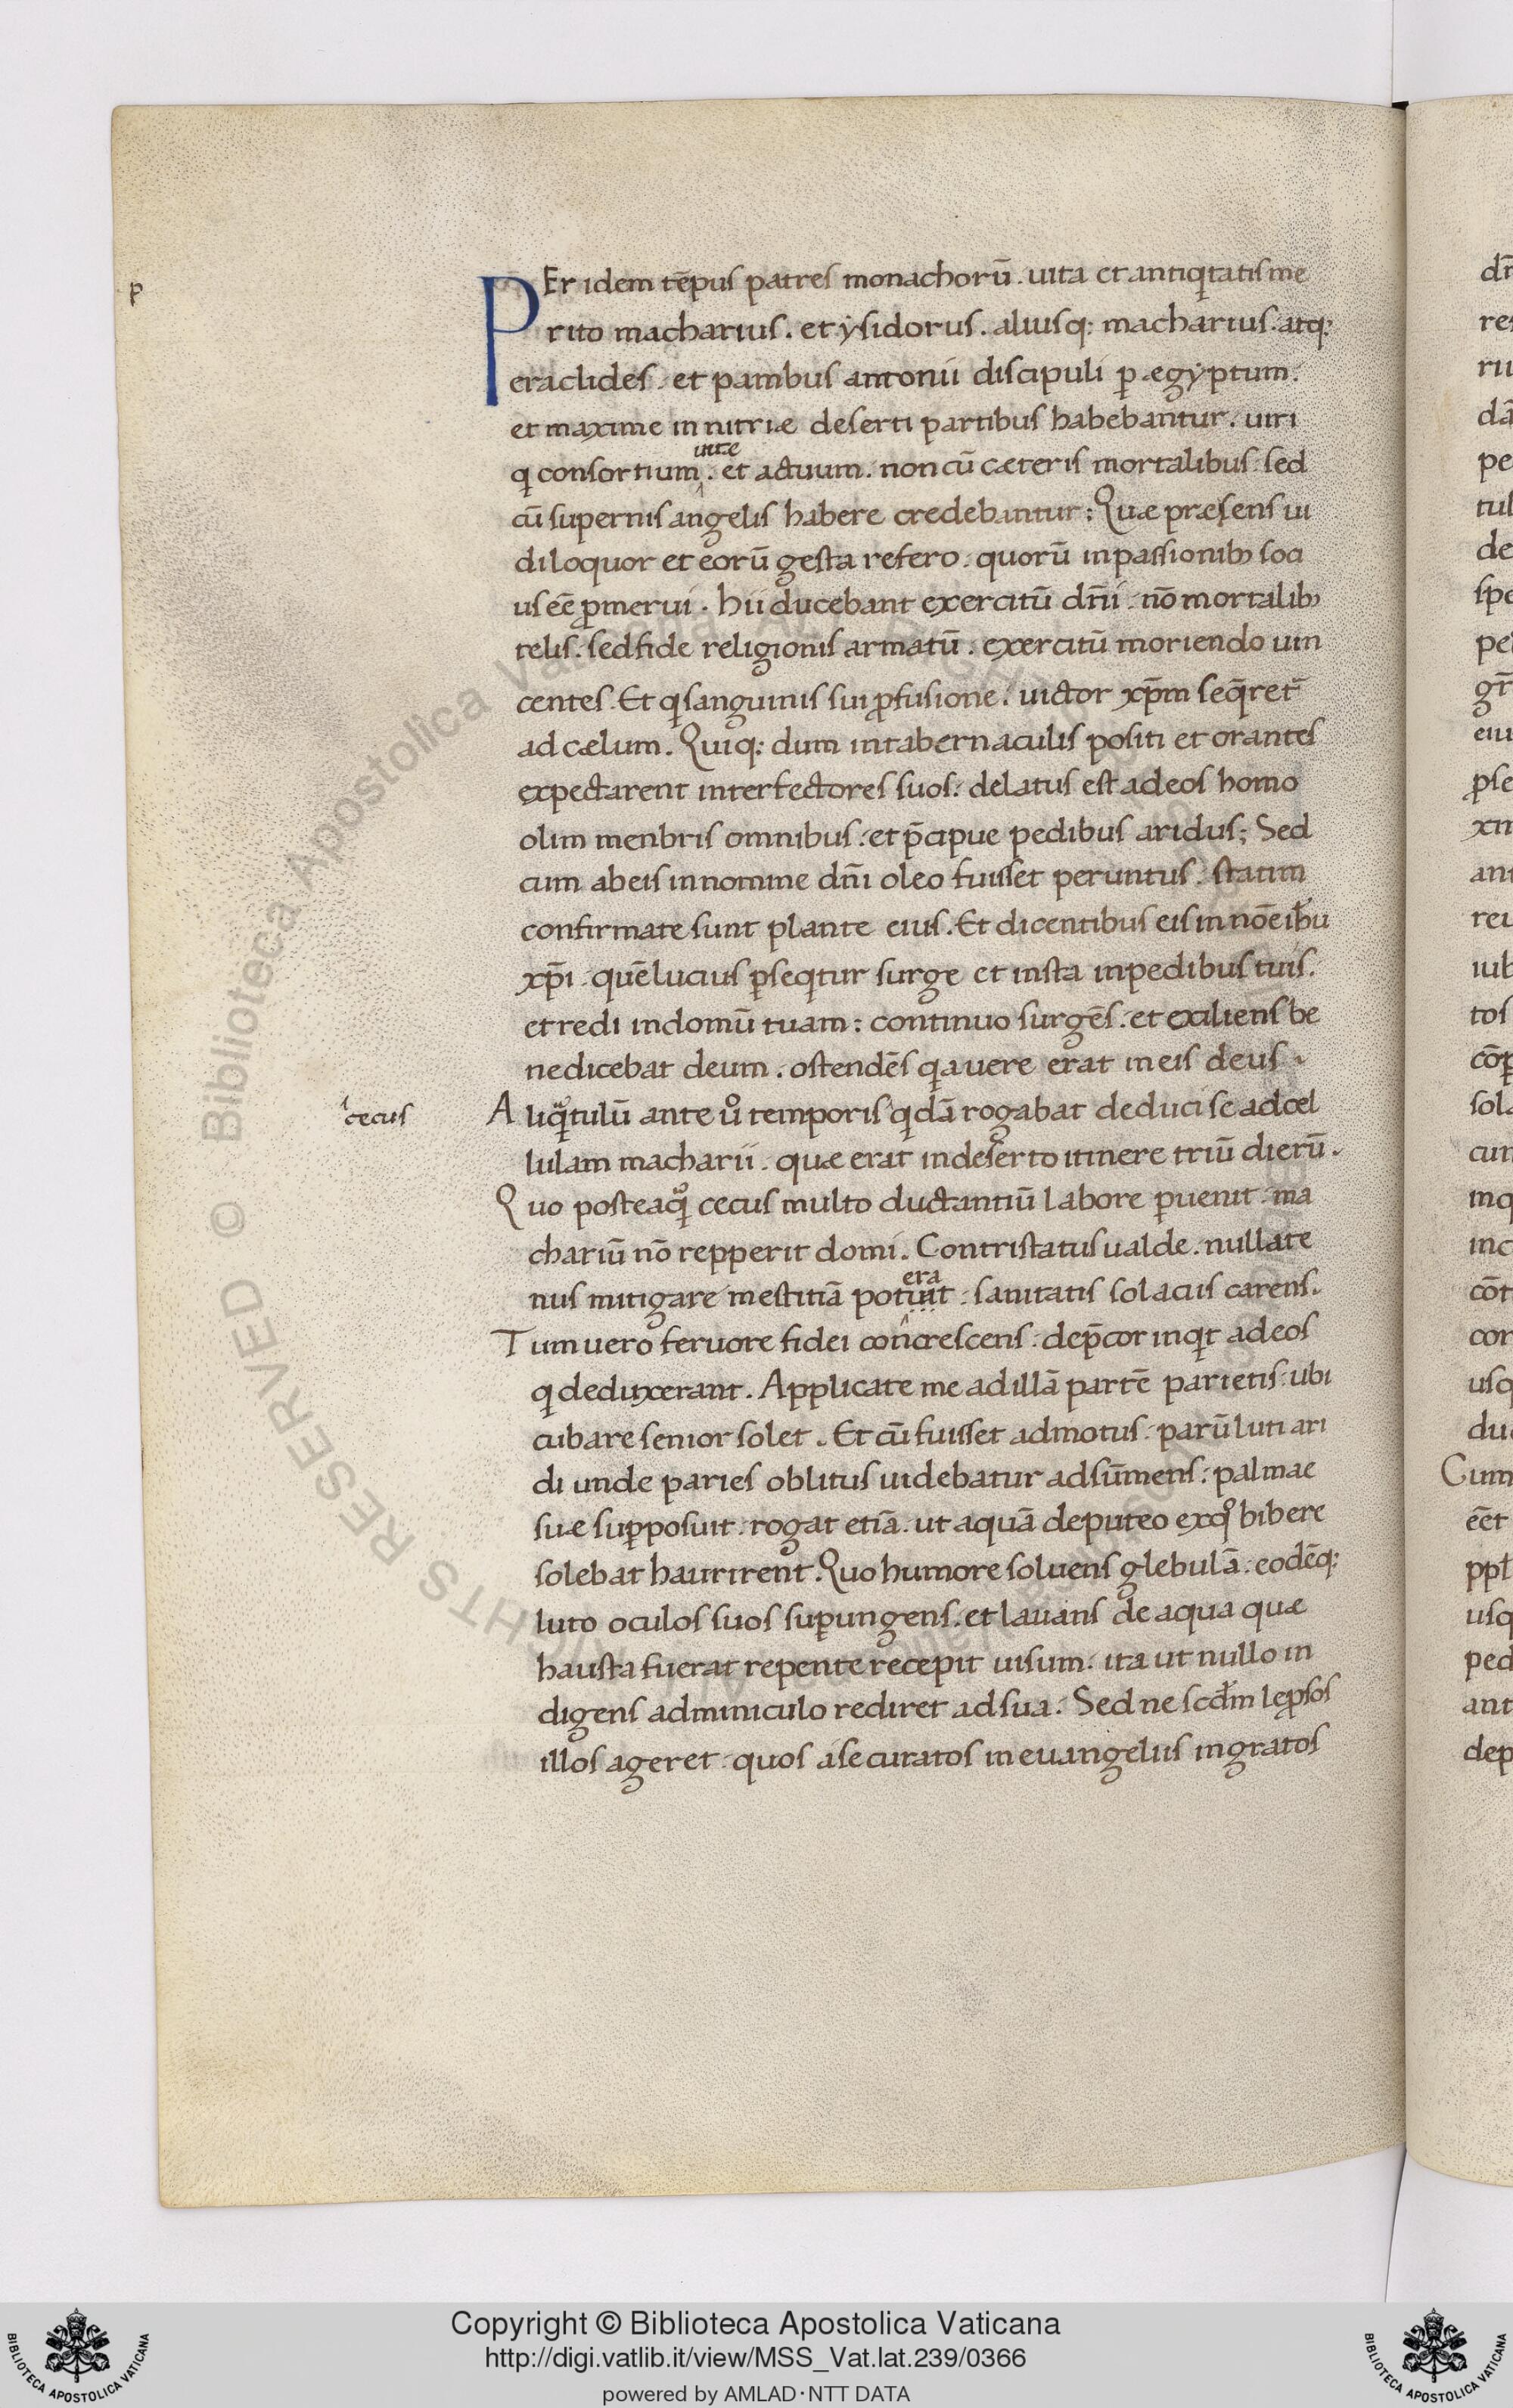 p
PEr idem tēpus patres monachorū. uita et antiqitatis me
rito macharius. et ysidorus. aliusq: macharius. atq:
eraclides. et pambus antonii discipuli p̄ ægyptum.
et maxime in nitriæ deserti partibus habebantur. uiri
qi consortium uitæ. et actuum. non cū cæteris mortalibus. sed
cū supernis angelis habere credebantur: Quæ præsens ui
di loquor et eorū gesta refero. quorū in passionib; soci
us eē p̄merui. hii ducebant exercitū dn̄i. nō mortalib;
telis. sed fide religionis armatū. exercitū moriendo uin
centes. Et qi sanguinis sui p̄fusione. uictor xp̄m seqret̄
ad cælum. Quiq: dum in tabernaculis positi et orantes
expectarent interfectores suos. delatus est ad eos homo
olim menbris omnibus. et p̄cipue pedibus aridus; Sed
cum ab eis in nomine dn̄i oleo fuisset peruntus. statim
confirmate sunt plante eius. Et dicentibus eis in nōe ih̄u
xp̄i. quē lucius p̄seqitur surge et insta in pedibus tuis.
et redi in domū tuam: continuo surgēs. et exiliens be
nedicebat deum. ostendēs qia uere erat in eis deus.
cecus
Aliqātulū ante uo temporis qidā rogabat deduci se ad cel
lulam macharii. quæ erat in deserto itinere triū dierū.
Quo posteaqo cecus multo ductantiū labore p̄uenit. ma
chariū nō repperit domi. Contristatus ualde. nullate
nus mitigare mestitiā potuit era. sanitatis solaciis carens.
Tum uero feruore fidei concrescens. dep̄cor inqit ad eos
qi deduxerant. Applicate me ad illā partē parietis. ubi
cubare senior solet. Et cū fuisset admotus. parū luti ari
di unde paries oblitus uidebatur ad sūmens. palmae
suæ sup̄posuit. rogat etiā. ut aquā de puteo ex qo bibere
solebat haurirent. Quo humore soluens glebulā. eodēq:
luto oculos suos sup̄ungens. et lauans de aqua quæ
hausta fuerat repente recepit uisum. ita ut nullo in
digens adminiculo rediret ad sua. Sed ne scd̄m lep̄sos
illos ageret. quos a se curatos in euangeliis ingratos
Biblioteca Apostolica Vaticana
ALL RIGHTS RESERVED ©
Copyright © Biblioteca Apostolica Vaticana
http://digi.vatlib.it/view/MSS_Vat.lat.239/0366
powered by AMLAD·NTT DATA
BIBLIOTECA APOSTOLICA VATICANA
BIBLIOTECA APOSTOLICA VATICANA